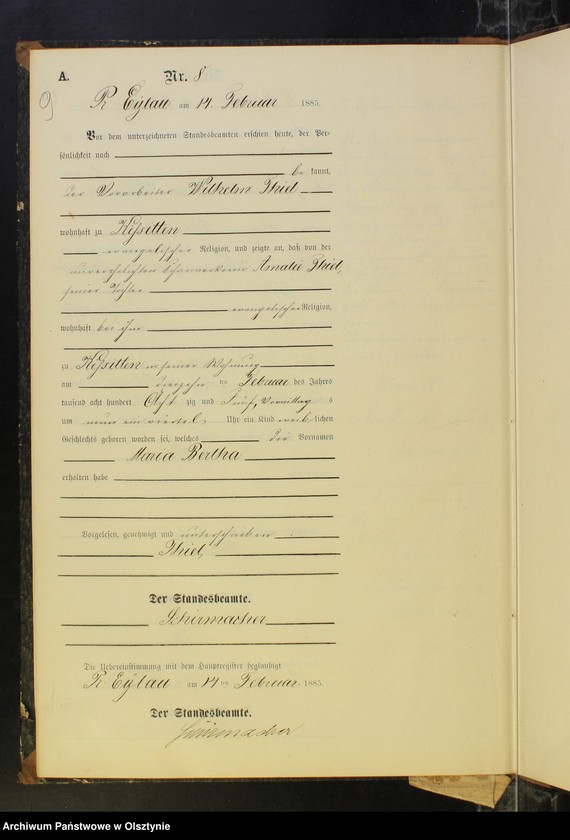 A. Nr. 8
9
Pr. Eylau am 14. Februar 1885.
Vor dem unterzeichneten Standesbeamten erschien heute, der Per-
sönlichkeit nach
be kannt,
der Vorarbeiter Wilhelm Thiel
wohnhaft zu Kissitten
evangelischer Religion, und zeigte an, daß von der
unverehelichten Scharwerkerin Amalie Thiel,
seiner Tochter
evangelischer Religion,
wohnhaft bei ihm
zu Kissitten in seiner Wohnung
am ten Februar des Jahres
tausend acht hundert Acht zig und Fünf, Vormittag s
um neun ein viertel Uhr ein Kind weib lichen
Geschlechts geboren worden sei, welches die Vornamen
Maria Bertha
erhalten habe
Vorgelesen, genehmigt und unterschrieben
Thiel
Der Standesbeamte.
Schirmacher
Die Uebereinstimmung mit dem Hauptregister beglaubigt
Pr. Eylau am 14 ten Februar 1885.
Der Standesbeamte.
Schirmacher
Archiwum Państwowe w Olsztynie